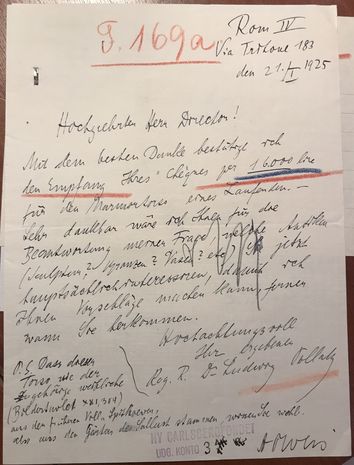 F. 169a
Rom IV
Via Tritone 183
den 21./I 1925
Hochgeehrter Herr Director!
Mit dem besten Danke bestätige ich
den Empfang Ihres Chèques per 16000 lire
für den Marmortorso eines Laufenden. —
Sehr dankbar wäre ich Ihnen für die
Beantwortung meiner Frage, welche Antiken
(Sculpturen? Bronzen? Vasen? etc) Sie jetzt
hauptsächlich interessieren, damit ich
Ihnen Vorschläge machen kann, ferner
wann Sie herkommen.
Hochachtungsvoll
Ihr ergebener
Reg. R. Dr Ludwig Pollak
P.S. Dass dieser
Torso wie der
zugehörige weibliche
(Billedtavler XXI, 304)
aus der früheren Villa Spithoever,
also aus den Gärten des Sallust stammen, wissen Sie wohl.
NY CARLSBERGFONDET
UDG. KONTO 3